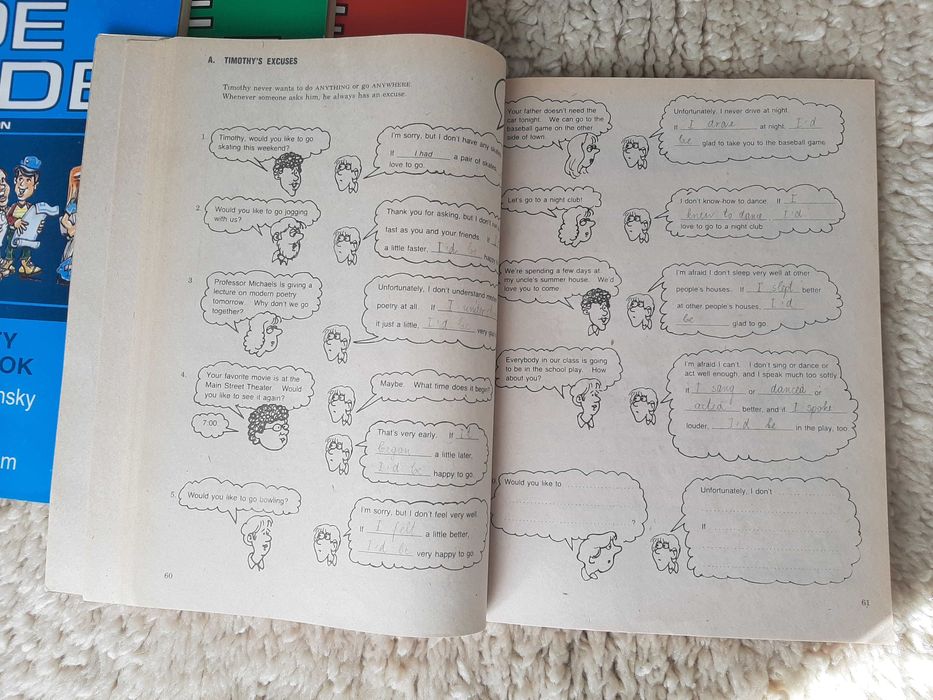 DE
DE
ON
TY
OK
nsky
m
A. TIMOTHY'S EXCUSES
Timothy never wants to do ANYTHING or go ANYWHERE
Whenever someone asks him, he always has an excuse.
1.
Timothy, would you like to go
skating this weekend?
I'm sorry, but I don't have any
If I had a pair of skates,
love to go.
2.
Would you like to go jogging
with us?
Thank you for asking, but I don't
fast as you and your friends. If
a little faster, I'd be
3.
Professor Michaels is giving a
lecture on modern poetry
tomorrow. Why don't we go
together?
Unfortunately, I don't understand
poetry at all. If I
it just a little, I'd be very
4.
Your favorite movie is at the
Main Street Theater. Would
you like to see it again?
Maybe. What time does it begin?
7:00
That's very early. If it
began a little later,
I'd be happy to go.
5.
Would you like to go bowling?
I'm sorry, but I don't feel very well.
If I felt a little better,
I'd be very happy to go.
60
Your father doesn't need the
car tonight. We can go to the
baseball game on the other
side of town.
Unfortunately, I never drive at night.
If I drove at night, I'd
be glad to take you to the baseball game.
Let's go to a night club!
I don't know how to dance. If I
knew to dance, I'd
love to go to a night club
We're spending a few days at
my uncle's summer house. We'd
love you to come.
I'm afraid I don't sleep very well at other
people's houses. If I slept better
at other people's houses, I'd
be glad to go
Everybody in our class is going
to be in the school play. How
about you?
I'm afraid I can't. I don't sing or dance or
act well enough, and I speak much too softly.
If I sang or danced or
acted better, and if I spoke
louder, I'd be in the play, too.
Would you like to
?
Unfortunately, I don't
If
61